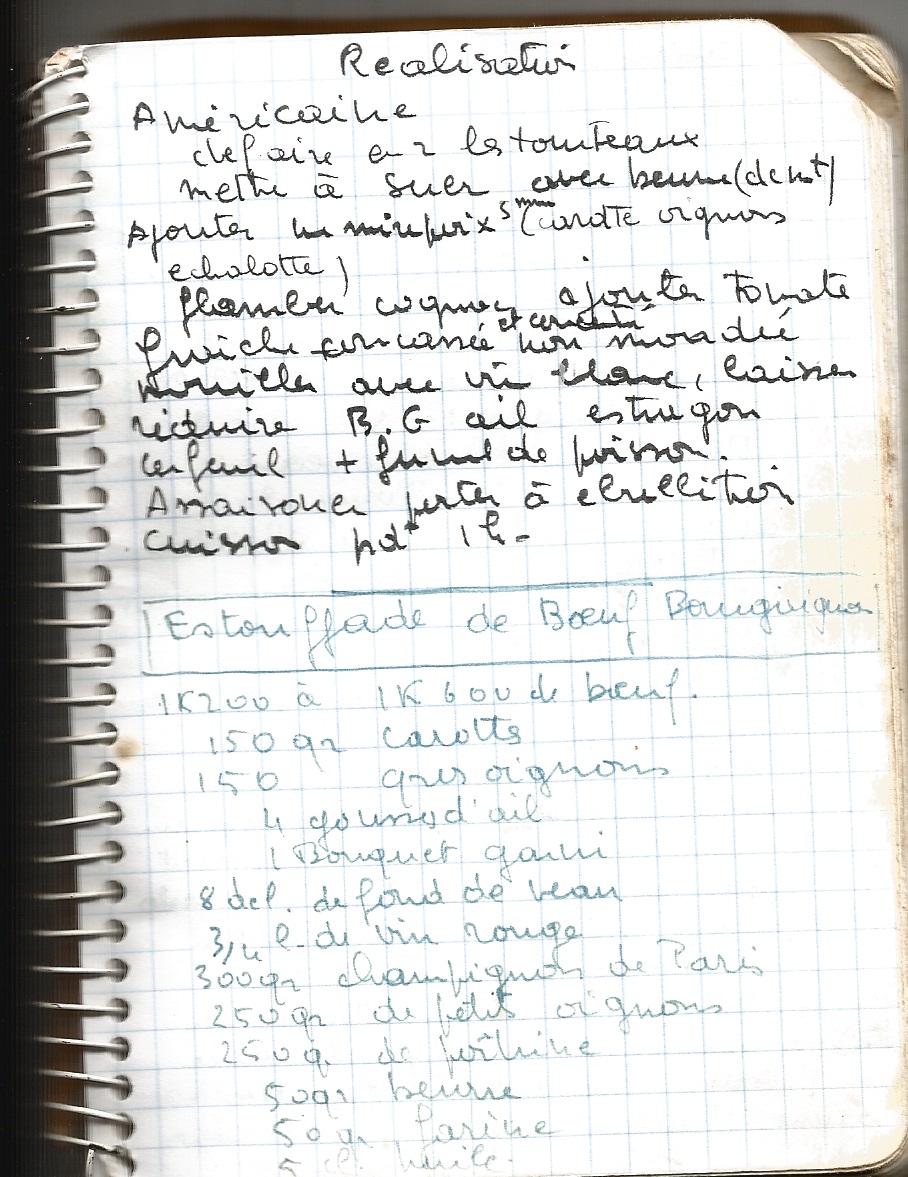 Realisation
Américaine
defaire en 2 les tourteaux
mettre à suer avec beurre (de mt)
Ajouter une mirepoix 5mm (carotte oignons
echalotte)
flamber cognac ajouter tomate
fraiche concassée et concentré non mondée
mouiller avec vin blanc, laisser
réduire B.G ail estragon
cerfeuil + fumet de poisson.
Assaisoner porter à ebullition
cuisson pdt 1h-
Estouffade de Bœuf Bourguignon
1K200 à 1K600 de bœuf.
150 gr carotts
150 gros oignons
4 gousses d'ail
1 Bouquet garni
8 decl. de fond de veau
3/4 l. de vin rouge
300gr champignons de Paris
250gr de petit oignons
250g de poitrine
50gr beurre
50 gr farine
5 cl. huile.